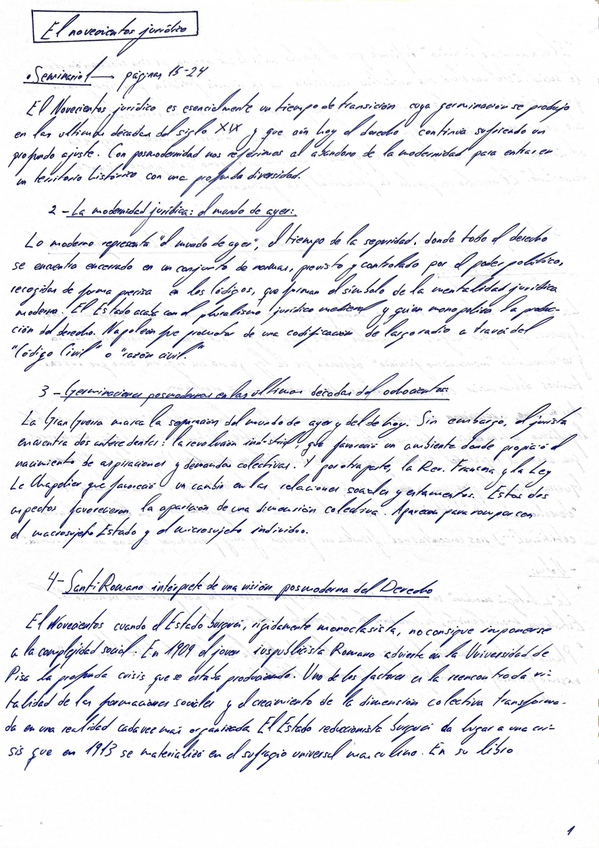 El novecientos jurídico
• Seminario 1 — páginas 15-24
El Novecientos jurídico es esencialmente un tiempo de transición cuya germinación se produjo
en las últimas décadas del siglo XIX y que aún hoy el derecho continua sufriendo un
profundo ajuste. Con posmodernidad nos referimos al abandono de la modernidad para entrar en
un territorio histórico con una profunda diversidad.
2 - La modernidad jurídica: el mundo de ayer:
Lo moderno representa "el mundo de ayer", el tiempo de la seguridad, donde todo el derecho
se encuentra encerrado en un conjunto de normas, previsto y controlado por el poder político,
recogidas de forma precisa en los Códigos, que forman el símbolo de la mentalidad jurídica
moderna. El Estado acaba con el pluralismo jurídico medieval y quien monopoliza la produc-
ción del derecho. Napoleón fue promotor de una codificación de largo radio a través del
"Código Civil" o "razón civil"
3 - Germinaciones posmodernas en las últimas décadas del ochocientos:
La Gran Guerra marca la separación del mundo de ayer y del de hoy. Sin embargo, el jurista
encuentra dos antecedentes: la revolución industrial, que favoreció un ambiente donde propició el
nacimiento de aspiraciones y demandas colectivas. Y por otra parte, la Rev. Francesa y la Ley
Le Chapelier que favoreció un cambio en las relaciones sociales y estamentos. Estos dos
aspectos favorecieron la aparición de una dimensión colectiva. Aparecen para romper con
el macrosujeto Estado y el microsujeto individuo.
4 - Santi Romano intérprete de una visión posmoderna del Derecho
El Novecientos cuando el Estado burgués, rígidamente monoclasista, no consigue imponerse
a la complejidad social. En 1909 el joven iuspublicista Romano advierte en la Universidad de
Pisa la profunda crisis que se estaba produciendo. Uno de los factores es la reencontrada vi-
talidad de las formaciones sociales y el crecimiento de la dimensión colectiva transforma-
da en una realidad cada vez más organizada. El Estado reduccionista burgués da lugar a una cri-
sis que en 1913 se materializó en el sufragio universal masculino. En su libro
1